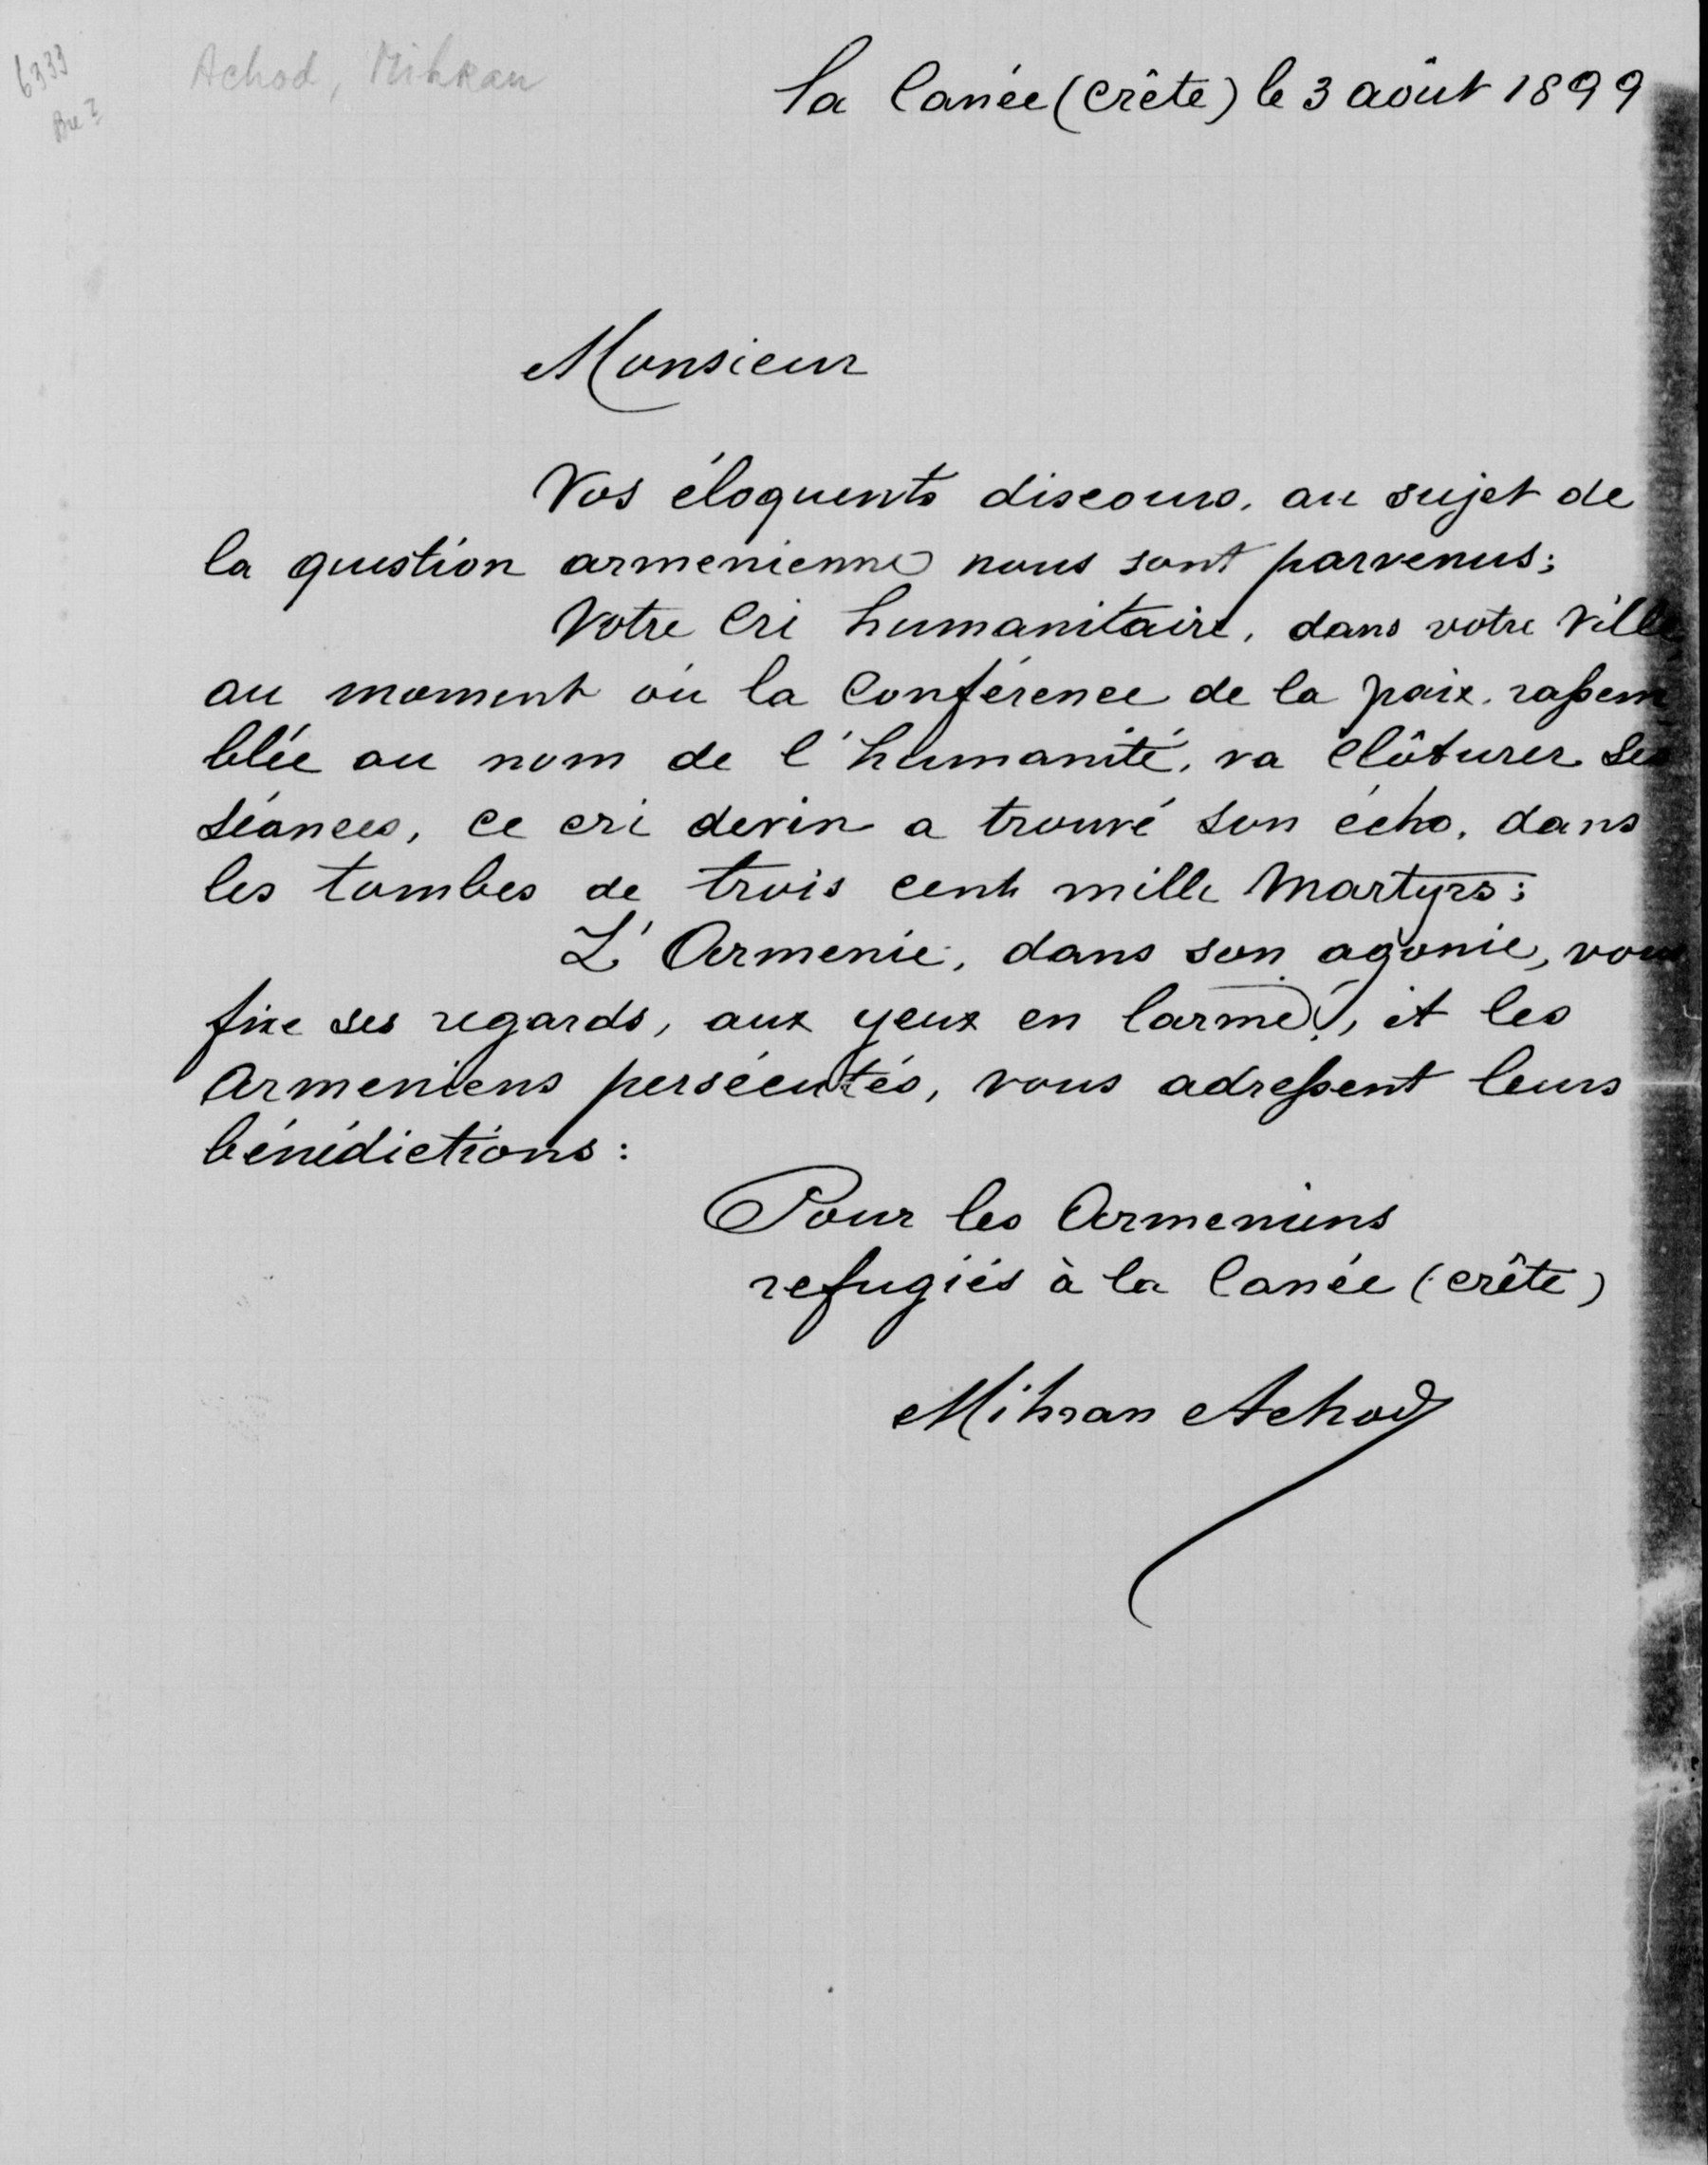 6333
Achod, Mihran
la Canée (Crête) le 3 août 1899
Monsieur
Vos éloquents discours, au sujet de
la question armenienne nous sont parvenus;
Votre Cri humanitaire, dans votre Ville,
au moment où la Conférence de la paix, rassem
blée au nom de l'humanité, va Clôturer Ses
séances, ce cri devin a trouvé son écho, dans
les tombes de trois cent mille Martyrs;
L'Armenie, dans son agonie, vous
fixe ses regards, aux yeux en larme!, et les
Armeniens persécutés, vous adressent leurs
bénédictions:
Pour les Armeniens
refugiés à la Canée (Crête)
Mihran Achod